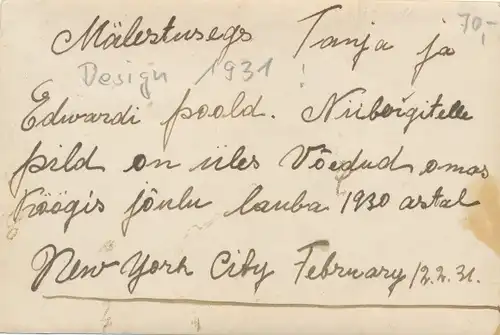 70,-
Mälestusegs Tanja ja
Design 1931!
Edwardi poold. Niiborgitelle
pild on üles Võedud omas
Köögis jõulu lauba 1930 astal
New York City February 12.2.31.